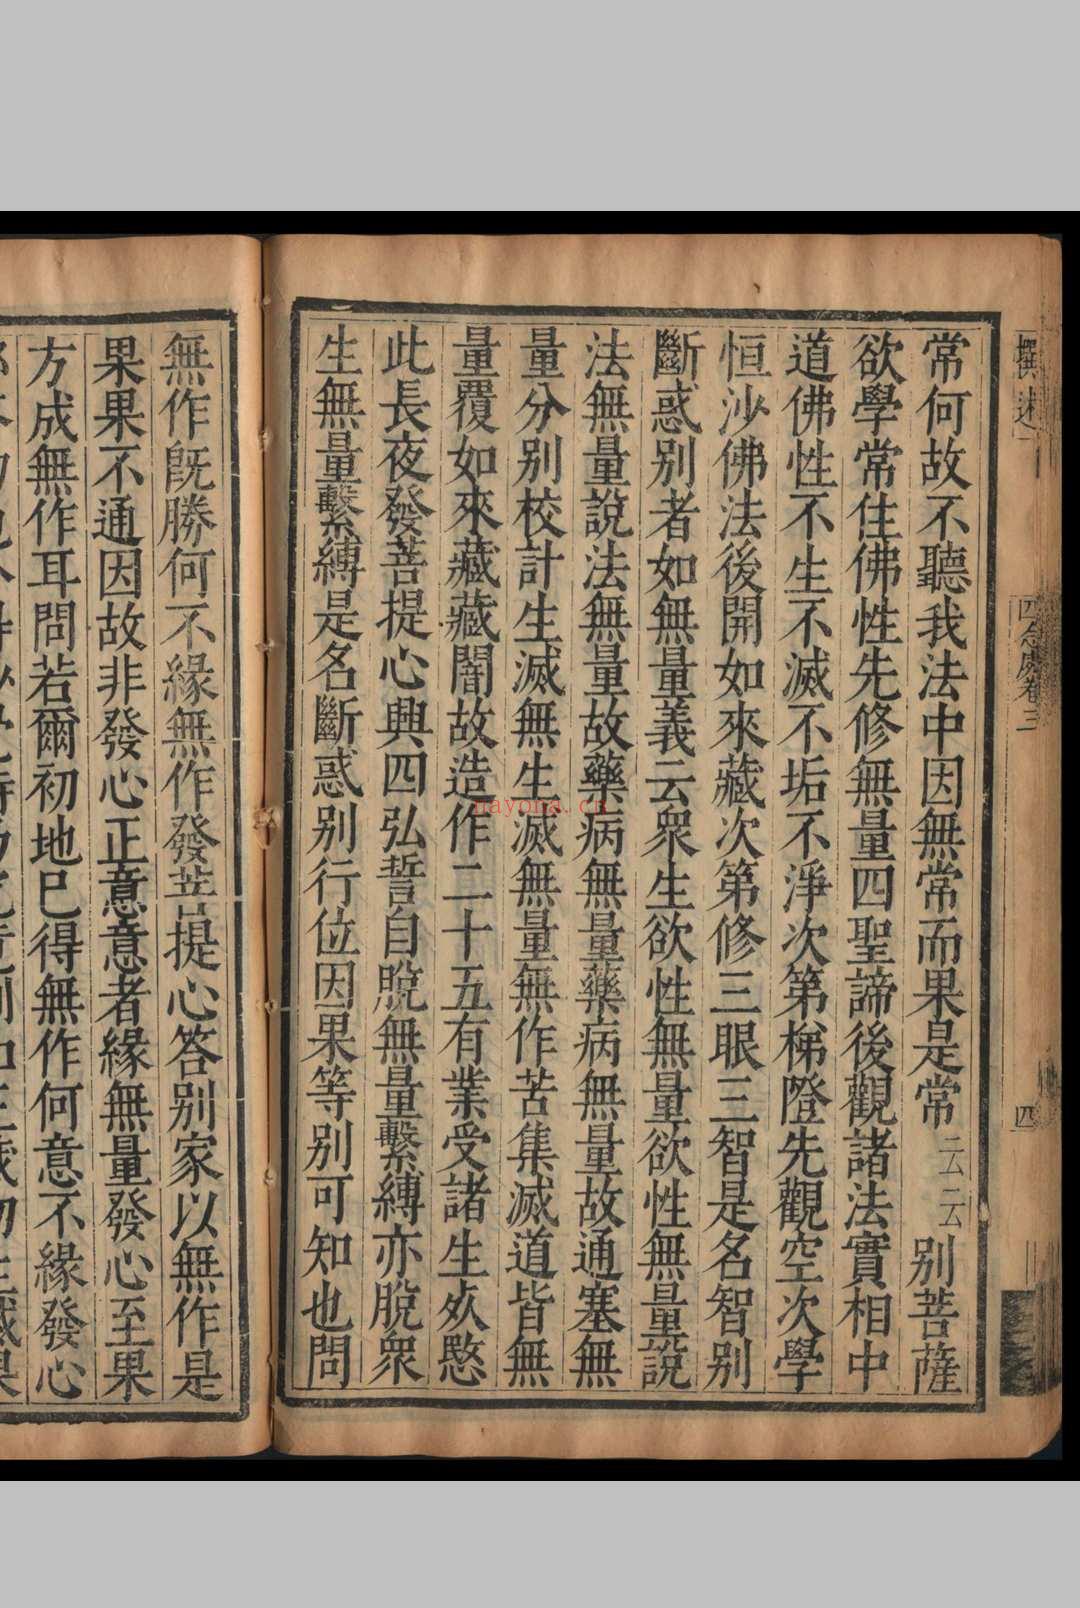 撰述
四念處卷三
四
常何故不聽我法中因無常而果是常云云別菩薩
欲學常住佛性先修無量四聖諦後觀諸法實相中
道佛性不生不滅不垢不淨次第梯隥先觀空次學
恒沙佛法後開如來藏次第修三眼三智是名智別
斷惑別者如無量義云眾生欲性無量欲性無量說
法無量說法無量故藥病無量藥病無量故通塞無
量分別校計生滅無生滅無量無作苦集滅道皆無
量覆如來藏藏闇故造作二十五有業受諸生死愍
此長夜發菩提心興四弘誓自脫無量繫縛亦脫衆
生無量繫縛是名斷惑別行位因果等別可知也問
無作旣勝何不緣無作發菩提心答別家以無作是
果果不通因故非發心正意意者緣無量發心至果
方成無作耳問若爾初地巳得無作何意不緣發心
nayona.cn